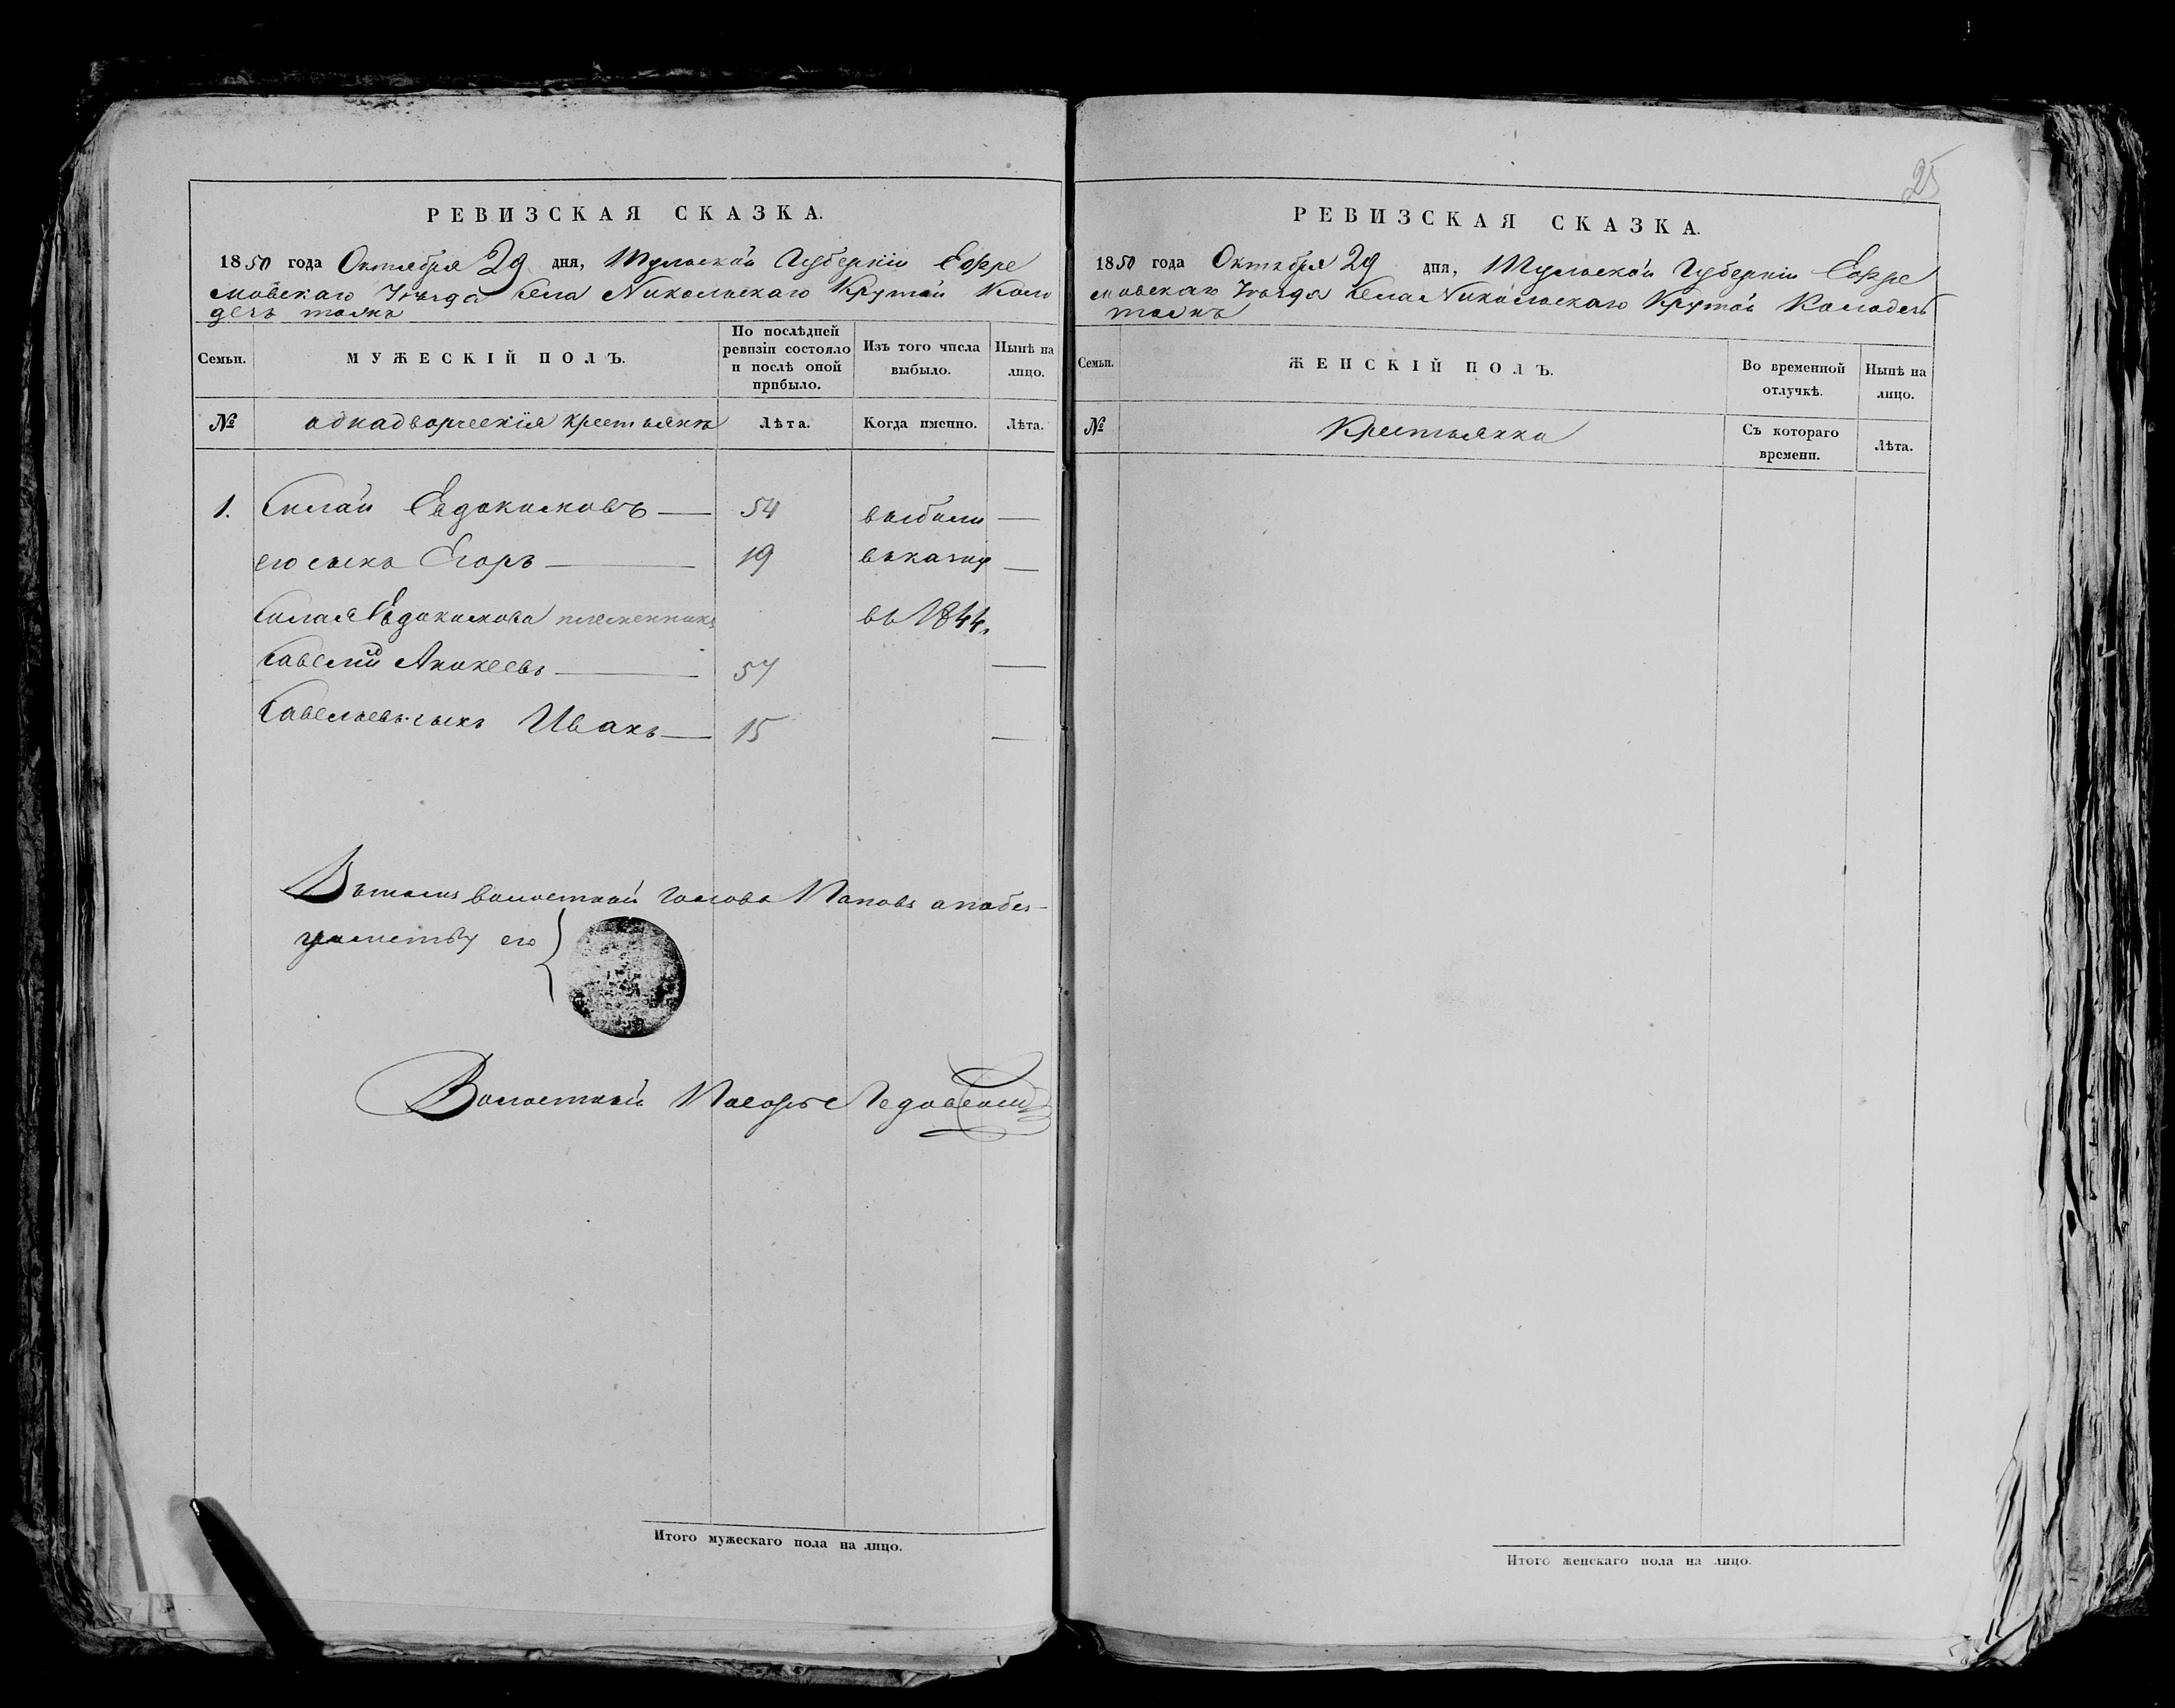 РЕВИЗСКАЯ СКАЗКА.
1850 года Октября 29 дня, Тульской Губерніи Ефре
мовскаго Уѣзда Села Никольскаго Крутой Коло
дезь тожъ
Семьи.
МУЖЕСКІЙ ПОЛЪ.
По послѣдней ревизіи состояло и послѣ оной прибыло.
Изъ того числа выбыло.
Нынѣ на лицо.
№
аднадворческія крестьяне
Лѣта.
Когда именно.
Лѣта.
1. Силай Евдокимовъ 54 выбыли
его сынъ Егоръ 19 въ казну
Силая Евдокимова племенникъ въ 1844.
Савелий Аникеевъ 57
Савельевъ сынъ Иванъ 15
волостной голова Поповъ а по без-
грамотству его
Волостной Писарь
Итого мужескаго пола на лицо.
25
РЕВИЗСКАЯ СКАЗКА.
1850 года Октября 29 дня, Тульской Губерніи Ефре
мовскаго Уѣзда Села Никольскаго Крутой Колодезь
тожъ
Семьи.
ЖЕНСКІЙ ПОЛЪ.
Во временной отлучкѣ.
Нынѣ на лицо.
№
Крестьянки
Съ котораго времени.
Лѣта.
Итого женскаго пола на лицо.